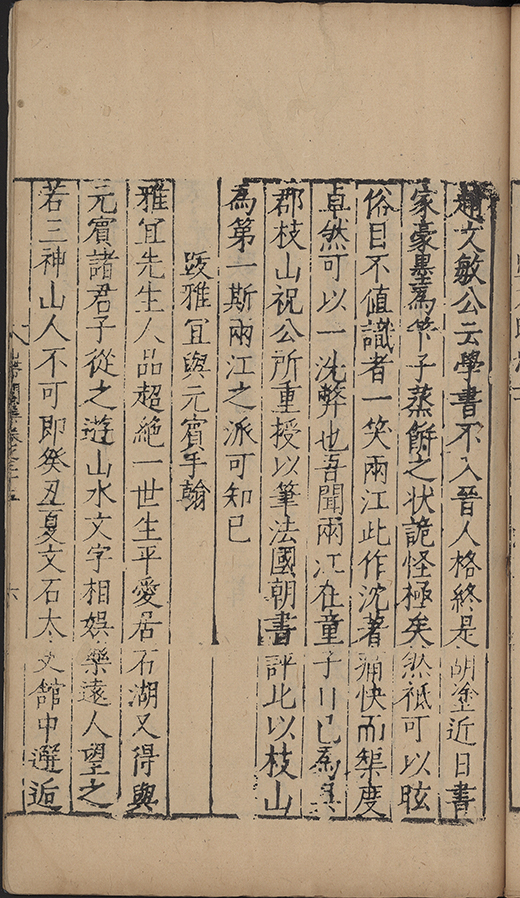 趙文敏公云學書不入晉人格終是胡塗近日書
家豪墨爲竿子蒸餅之状詭怪極矣然祗可以眩
俗目不值識者一笑兩江此作沈著痛快而榘度
卓然可以一洗弊也吾聞兩江在童子已爲
郡枝山祝公所重授以筆法國朝書評此以枝山
為第一斯兩江之派可知已
跋雅宜與元賔手翰
雅宜先生人品超絶一世生平愛居石湖又得與
元賔諸君子從之遊山水文字相娯樂遠人望之
若三神山人不可即癸丑夏文石太史舘中邂逅